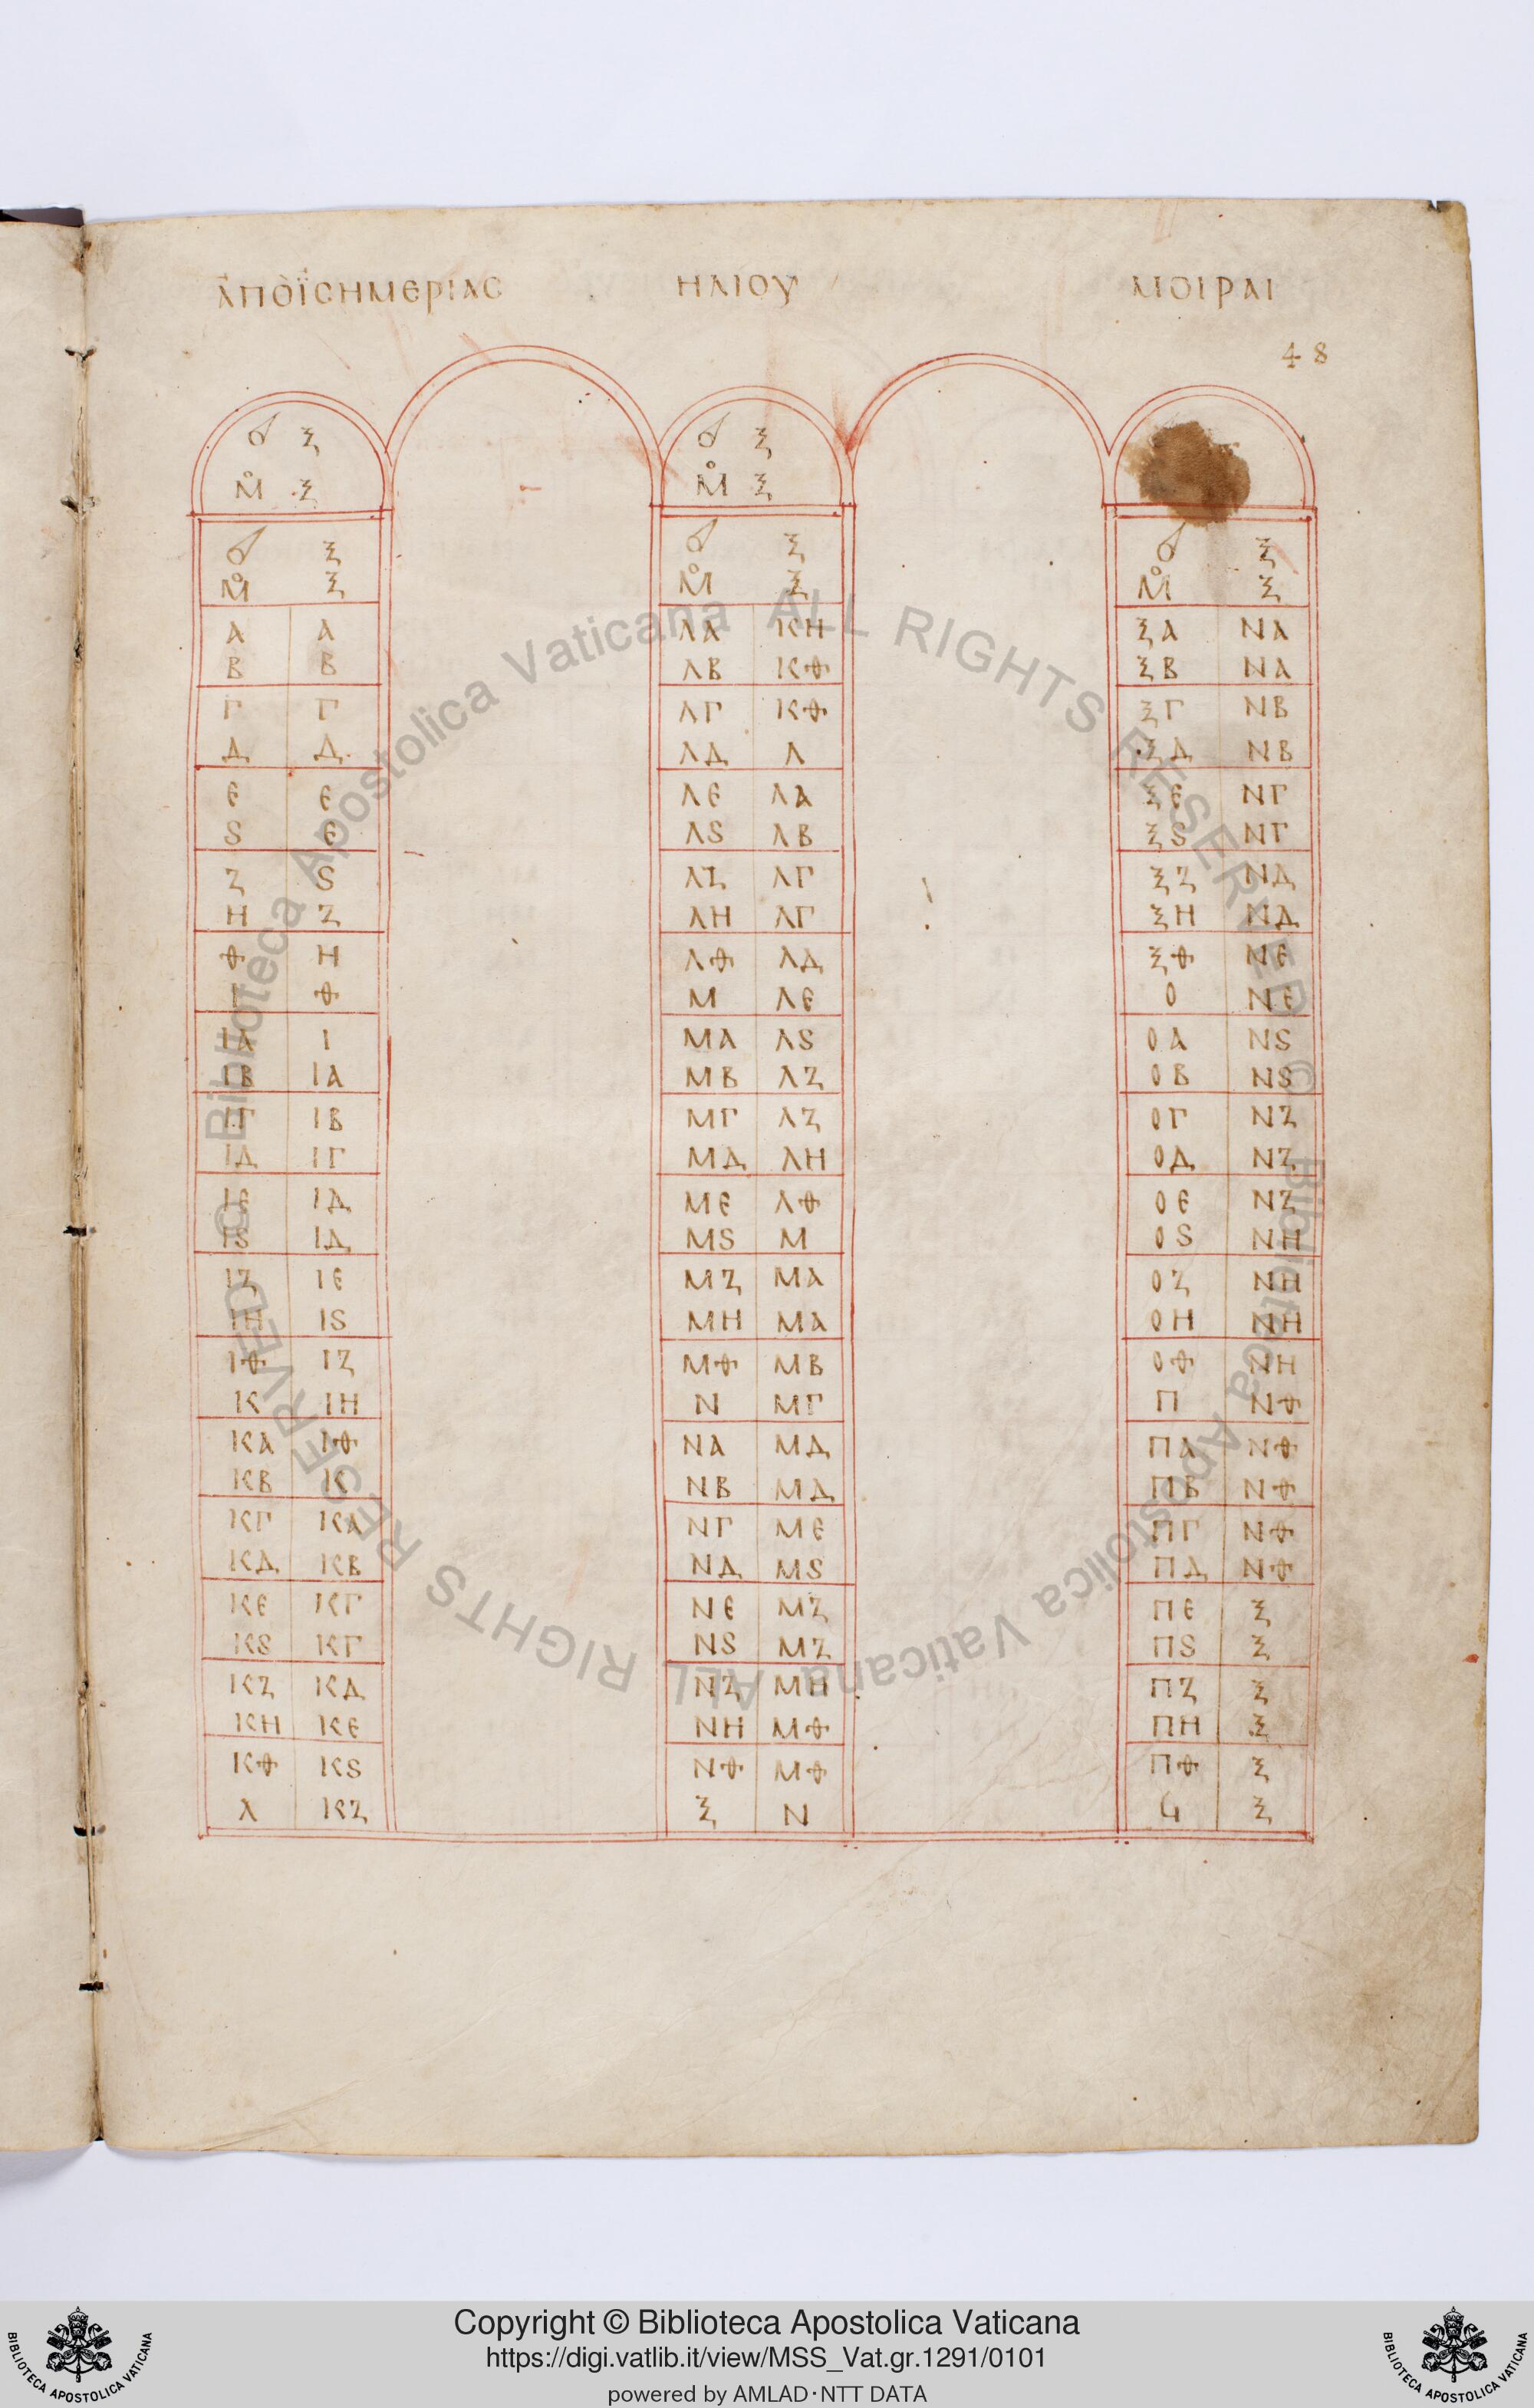 ἈΠῸΪϹΗΜΕΡΙΑϹ ΗΛΙΟΥ ΜΟΙΡΑΙ
48
Ξ Ξ
Μο Ξ Μο Ξ
Ξ Ξ Ξ
Μο Ξ Μο Ξ Μο Ξ
Α Α ΛΑ ΚΗ ΞΑ ΝΑ
Β Β ΛΒ ΚΘ ΞΒ ΝΑ
Γ Γ ΛΓ ΚΘ ΞΓ ΝΒ
Δ Δ ΛΔ Λ ΞΔ ΝΒ
Ε Ε ΛΕ ΛΑ ΞΕ ΝΓ
Ϛ Ε ΛϚ ΛΒ ΞϚ ΝΓ
Ζ Ϛ ΛΖ ΛΓ ΞΖ ΝΔ
Η Ζ ΛΗ ΛΓ ΞΗ ΝΔ
Θ Η ΛΘ ΛΔ ΞΘ ΝΕ
Ι Θ Μ ΛΕ Ο ΝΕ
ΙΑ Ι ΜΑ ΛϚ ΟΑ ΝϚ
ΙΒ ΙΑ ΜΒ ΛΖ ΟΒ ΝϚ
ΙΓ ΙΒ ΜΓ ΛΖ ΟΓ ΝΖ
ΙΔ ΙΓ ΜΔ ΛΗ ΟΔ ΝΖ
ΙΕ ΙΔ ΜΕ ΛΘ ΟΕ ΝΖ
ΙϚ ΙΔ ΜϚ Μ ΟϚ ΝΗ
ΙΖ ΙΕ ΜΖ ΜΑ ΟΖ ΝΗ
ΙΗ ΙϚ ΜΗ ΜΑ ΟΗ ΝΗ
ΙΘ ΙΖ ΜΘ ΜΒ ΟΘ ΝΗ
Κ ΙΗ Ν ΜΓ Π ΝΘ
ΚΑ ΙΘ ΝΑ ΜΔ ΠΑ ΝΘ
ΚΒ Κ ΝΒ ΜΔ ΠΒ ΝΘ
ΚΓ ΚΑ ΝΓ ΜΕ ΠΓ ΝΘ
ΚΔ ΚΒ ΝΔ ΜϚ ΠΔ ΝΘ
ΚΕ ΚΓ ΝΕ ΜΖ ΠΕ Ξ
ΚϚ ΚΓ ΝϚ ΜΖ ΠϚ Ξ
ΚΖ ΚΔ ΝΖ ΜΗ ΠΖ Ξ
ΚΗ ΚΕ ΝΗ ΜΘ ΠΗ Ξ
ΚΘ ΚϚ ΝΘ ΜΘ ΠΘ Ξ
Λ ΚΖ Ξ Ν Ϟ Ξ
© Biblioteca Apostolica Vaticana ALL RIGHTS RESERVED © Biblioteca Apostolica Vaticana ALL RIGHTS RESERVED
Copyright © Biblioteca Apostolica Vaticana
https://digi.vatlib.it/view/MSS_Vat.gr.1291/0101
powered by AMLAD·NTT DATA
BIBLIOTECA APOSTOLICA VATICANA
BIBLIOTECA APOSTOLICA VATICANA